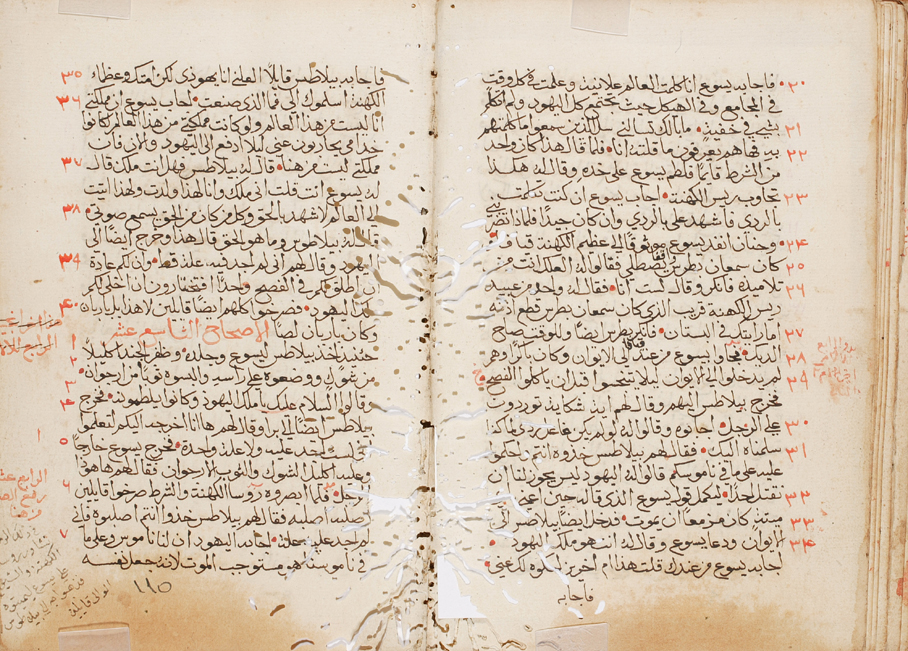 ٢٠ فاجابه يسوع انا كلمت العالم علانية وعلمت في كل وقت
في المجامع وفي الهيكل حيث يجتمع كل اليهود ولم اتكلم
٢١ بشي في خفية ما بالك تسالني سل الذين سمعوا ما كلمتهم
٢٢ به فها هم يعرفون ما قلته انا فلما قال هذا كان واحد
من الشرط قايما فلطم يسوع على خده وقال له هكذا
٢٣ تجاوب ريس الكهنة اجاب يسوع ان كنت تكلمت بشي
بالردي فاشهد علي بالردي وان كان جيدا فلماذا تضربني
٢٤ وحنان انفد يسوع موثوقا الى عظيم الكهنة قيافا
٢٥ كان سمعان بطرس يصطلي فقالوا له العلك انت من
٢٦ تلاميذه فانكر وقال لست انا فقال له واحد من عبيد
ريس الكهنة قريب الذي كان سمعان بطرس قطع اذنه
٢٧ اما رايتك في البستان فانكر بطرس ايضا وللوقت صاح
٢٨ الديك فجاوا بيسوع من عند قيافا الى الايوان وكان باكرا وهم
٢٩ لم يدخلوا الى الايوان ليلا يتنجسوا قبل ان ياكلوا الفصح
فخرج بيلاطس اليهم وقال لهم اية شكاية توردون
٣٠ على الرجل جاوبوه وقالوا له لو لم يكن فاعل ردي لما كنا
٣١ سلمناه اليك فقال لهم بيلاطس خذوه انتم واحكموا
عليه على ما في ناموسكم قالوا له اليهود ليس يجوز لنا ان
٣٢ نقتل احدا ليكمل قول يسوع الذي قاله حين اعني باي
٣٣ ميتة كان مزمعا ان يموت فدخل ايضا بيلاطس الى
٣٤ الايوان ودعا يسوع وقال له انت هو ملك اليهود
اجابه يسوع من عندك قلت هذا ام اخرين قالوه لك عني
فاجابه
٣٥ فاجابه بيلاطس قايلا العلني انا يهودي لكن امتك وعظماء
٣٦ الكهنة اسلموك الي فما الذي صنعت اجاب يسوع ان مملكتي
انا ليست من هذا العالم ولو كانت مملكتي من هذا العالم كانوا
خدامي يحاربون عني ليلا ادفع الى اليهود والان فان
٣٧ مملكتي ليست من هنا قال له بيلاطس فهل انت ملك قال
له يسوع انت قلت اني ملك وانا لهذا ولدت ولهذا اتيت
الى العالم لاشهد بالحق وكل من كان من الحق يسمع صوتي
٣٨ قال له بيلاطس وما هو الحق قال هذا وخرج ايضا الى
٣٩ اليهود وقال لهم اني لم اجد فيه علة قط وان لكم عادة
ان اطلق لكم في الفصح واحدا افتختارون ان اخلي لكم
٤٠ ملك اليهود فصرخوا كلهم ايضا قايلين لا هذا بل باراباس
وكان باربان لصا الاصحاح التاسع عشر
١ حينئذ اخذ بيلاطس ليسوع وجلده
٢ وظفر الجند اكليلا من شوك ووضعوه على راسه والبسوه ثوبا من ارجوان
٣ وقالوا السلام عليك يا ملك اليهود وكانوا يلطمونه
٤ فخرج بيلاطس ايضا الى برا وقال لهم ها انا اخرجه اليكم لتعلموا
٥ اني لست اجد عليه ولا علة واحدة فخرج يسوع خارجا
وعليه اكليل الشوك والثوب الارجوان فقال لهم ها هو
٦ الرجل فلما ابصروه روسا الكهنة والشرط صرخوا قايلين
اصلبه اصلبه فقال لهم بيلاطس خذوا انتم اصلبوه فاني
٧ لم اجد عليه علة اجابه اليهود ان لنا ناموس وعلى ما
في ناموسنا هو مستوجب الموت لانه جعل نفسه
١١٥